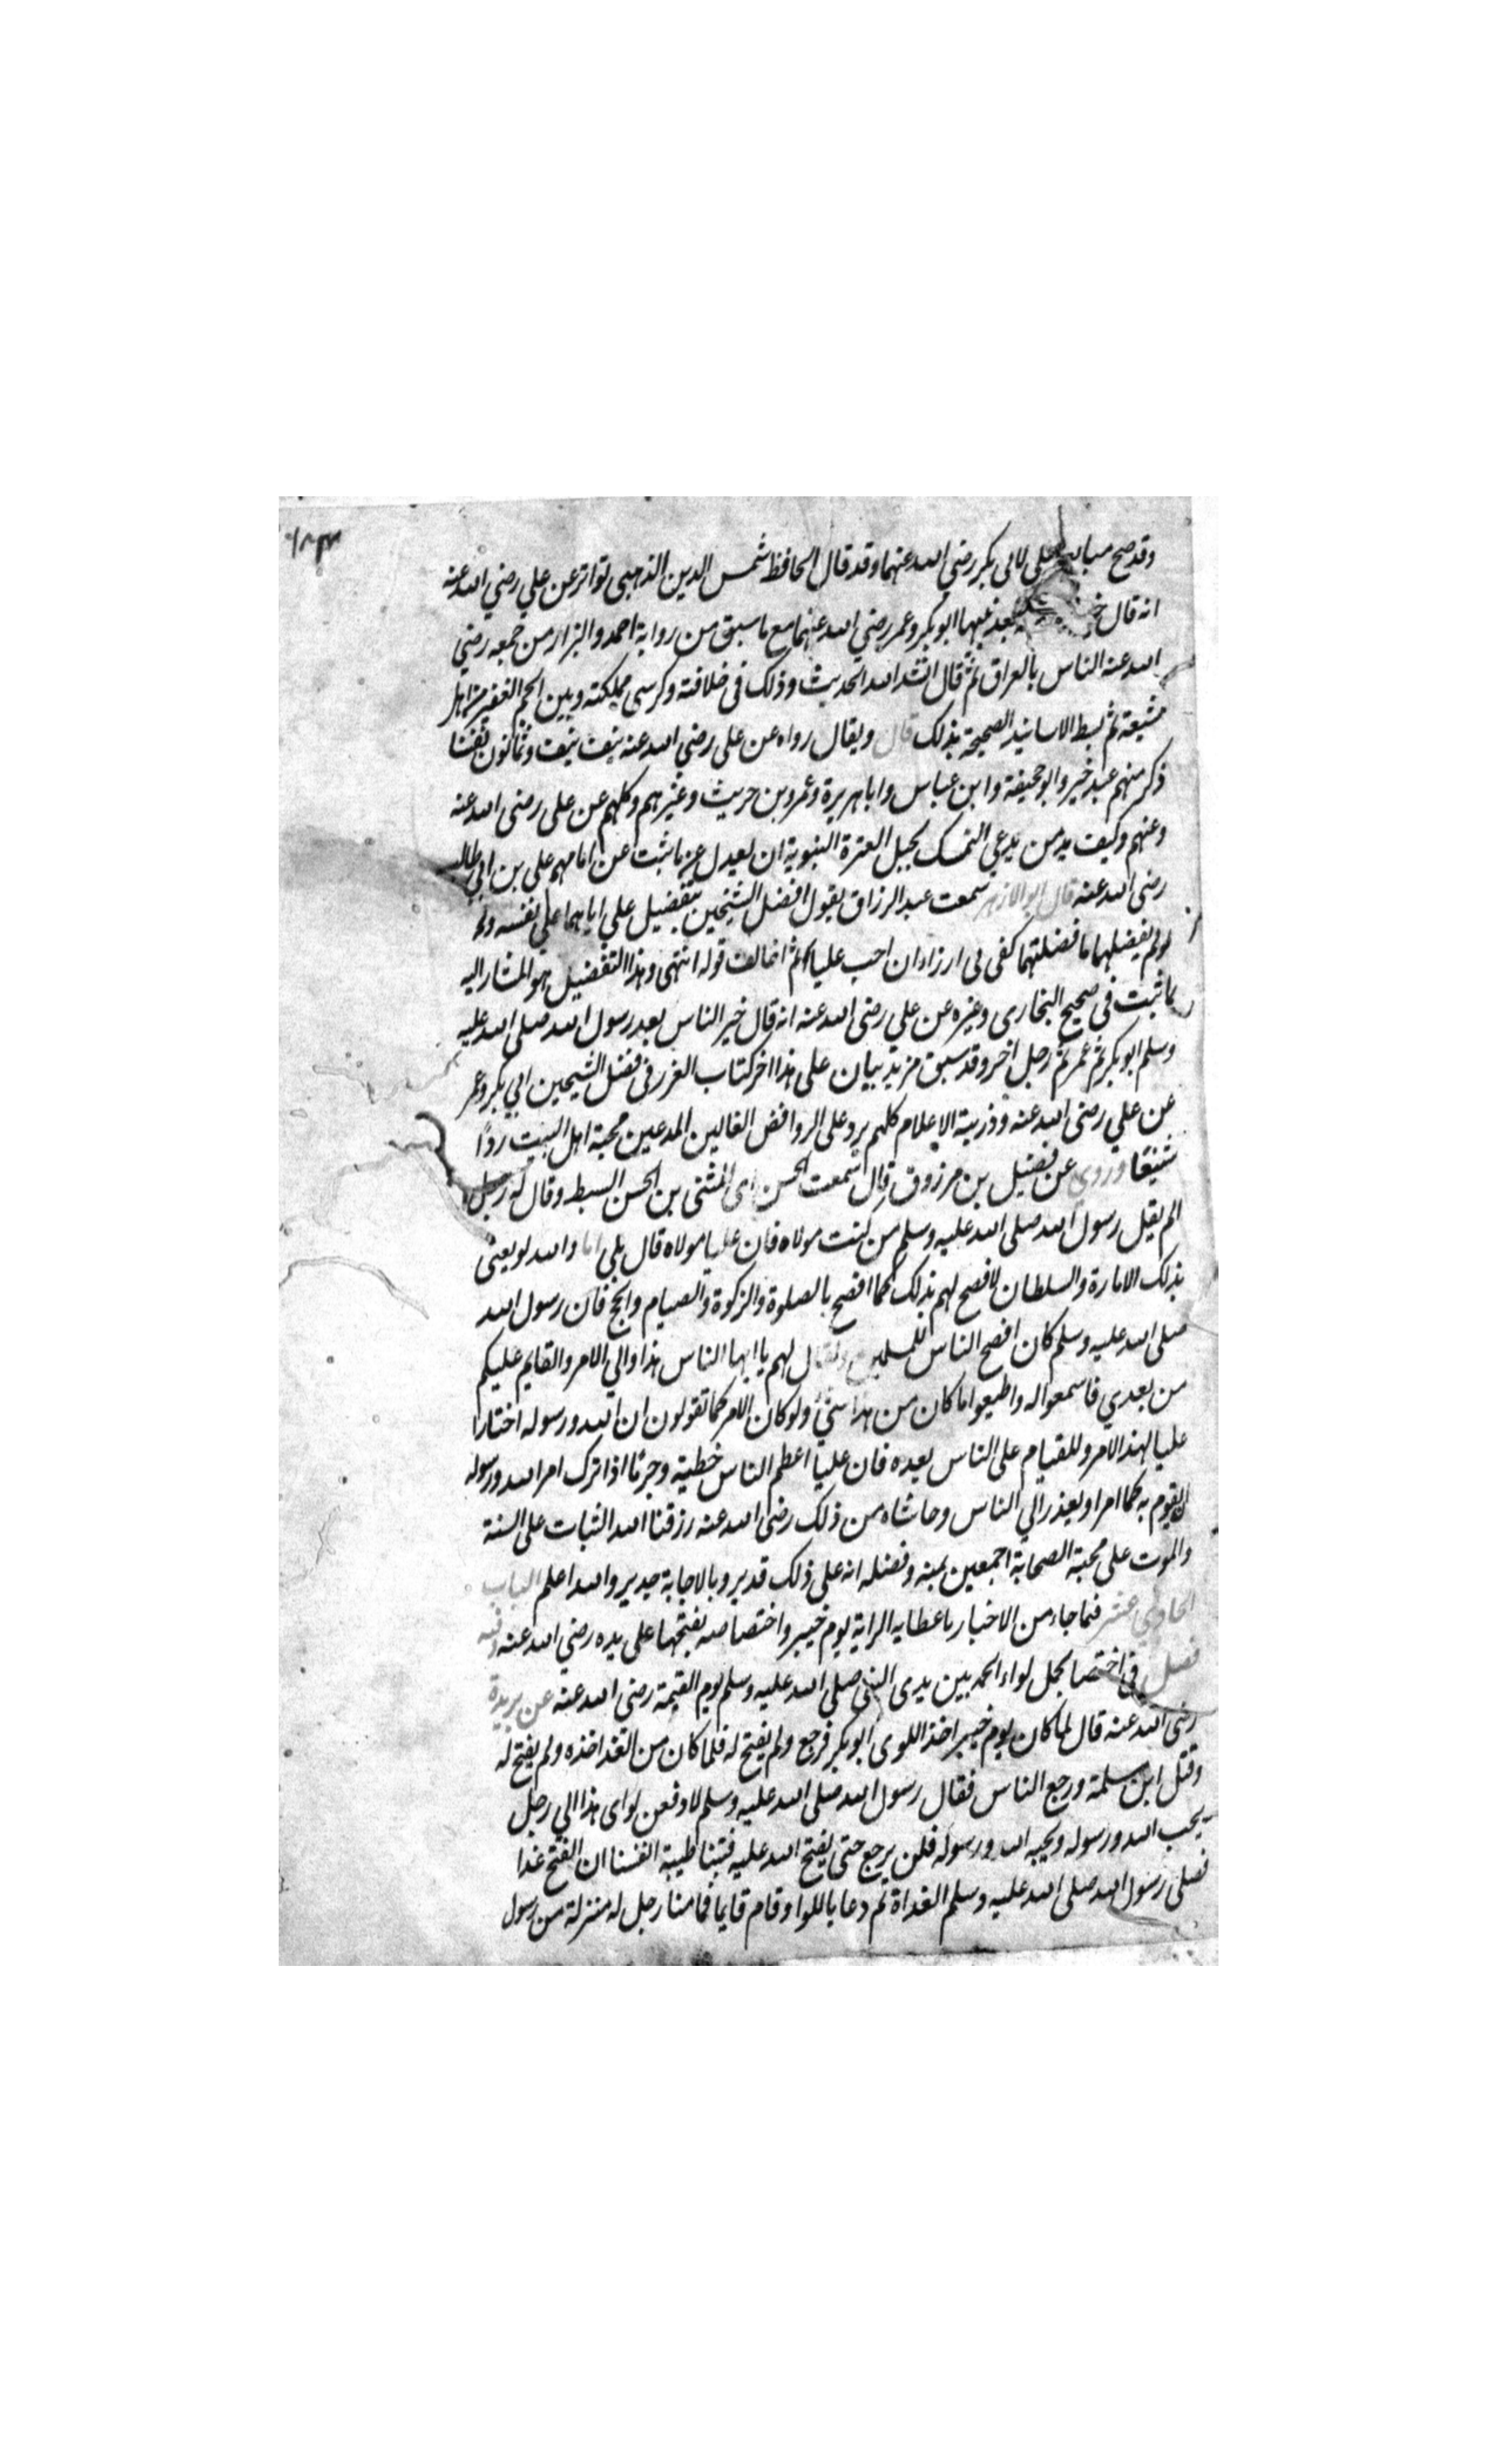 ١٨٣
وقد صح مبايعة علي لابي بكر رضي الله عنهما وقد قال الحافظ شمس الدين الذهبي تواتر عن علي رضي الله عنه
انه قال بعد نبيها ابو بكر وعمر رضي الله عنهما مع ما سبق من رواية احمد والبزار من جمعه رضي
الله عنه الناس بالعراق ثم قال انشد الله الحديث وذلك في خلافته وكرسي مملكته وبين الجم الغفير من اهل
شيعته ثم بسط الاسانيد الصحيحة بذلك قال ويقال رواه عن علي رضي الله عنه نيف نيف وثمانون نفسا
ذكر منهم عبد خير وابو جحيفة وابن عباس وابا هريرة وعمرو بن حريث وغيرهم وكلهم عن علي رضي الله عنه
وعنهم وكيف يد من يدعي التمسك بحبل العترة النبوية ان يعدل عن ما ثبت عن امامهم علي بن ابي طالب
رضي الله عنه قال ابو الازهر سمعت عبد الرزاق يقول افضل الشيخين بتفضيل علي اياهما علي نفسه ولو
لو لم يفضلهما ما فضلتهما كفي بي ازراء ان احب عليا ثم اخالف قوله انتهى وهذا التفضيل هو المشار اليه
بما ثبت في صحيح البخاري وغيره عن علي رضي الله عنه انه قال خير الناس بعد رسول الله صلى الله عليه
وسلم ابو بكر ثم عمر ثم رجل اخر وقد سبق مزيد بيان على هذا اخر كتاب الغرر في فضل الشيخين ابي بكر وعمر
عن علي رضي الله عنه وذريته الاعلام كلهم يرد على الروافض الغالين المدعين محبة اهل البيت ردًا
شنيعا وروى عن فضيل بن مرزوق قال سمعت الحسن اي المثنى بن الحسن السبط وقال له رجل
الم يقل رسول الله صلى الله عليه وسلم من كنت مولاه فان عليا مولاه قال بلي اما والله لو يعني
بذلك الامارة والسلطان لافصح لهم بذلك كما افصح بالصلوة والزكوة والصيام والحج فان رسول الله
صلى الله عليه وسلم كان افصح الناس للمسلمين ولقال لهم يا ايها الناس هذا والي الامر والقايم عليكم
من بعدي فاسمعوا له واطيعوا ما كان من هذا شئ ولو كان الامر كما تقولون ان الله ورسوله اختارا
عليا لهذا الامر وللقيام على الناس بعده فان عليا اعظم الناس خطيئة وجرمًا اذا ترك امر الله ورسوله
ان يقوم به كما امر او يعذر الي الناس وحاشاه من ذلك رضي الله عنه رزقنا الله الثبات على السنة
والموت على محبة الصحابة اجمعين بمنه وفضله انه على ذلك قدير وبالاجابة جدير والله اعلم الباب
الحادي عشر فيما جاء من الاخبار باعطايه الراية يوم خيبر واختصاصه بفتحها على يده رضي الله عنه وفيه
فصل في اختصا بحمل لواء الحمد بين يدي النبي صلى الله عليه وسلم يوم القيمة رضي الله عنه عن بريدة
رضي الله عنه قال لما كان يوم خيبر اخذ اللوى ابو بكر فرجع ولم يفتح له فلما كان من الغد اخذه ولم يفتح له
وقتل ابن سلمة ورجع الناس فقال رسول الله صلى الله عليه وسلم لادفعن لواى هذا الي رجل
يحب الله ورسوله ويحبه الله ورسوله فلن يرجع حتى يفتح الله عليه فبتنا طيبة انفسنا ان الفتح غدا
فصلى رسول الله صلى الله عليه وسلم الغداة ثم دعا باللوا وقام قايما فما منا رجل له منزلة من رسول